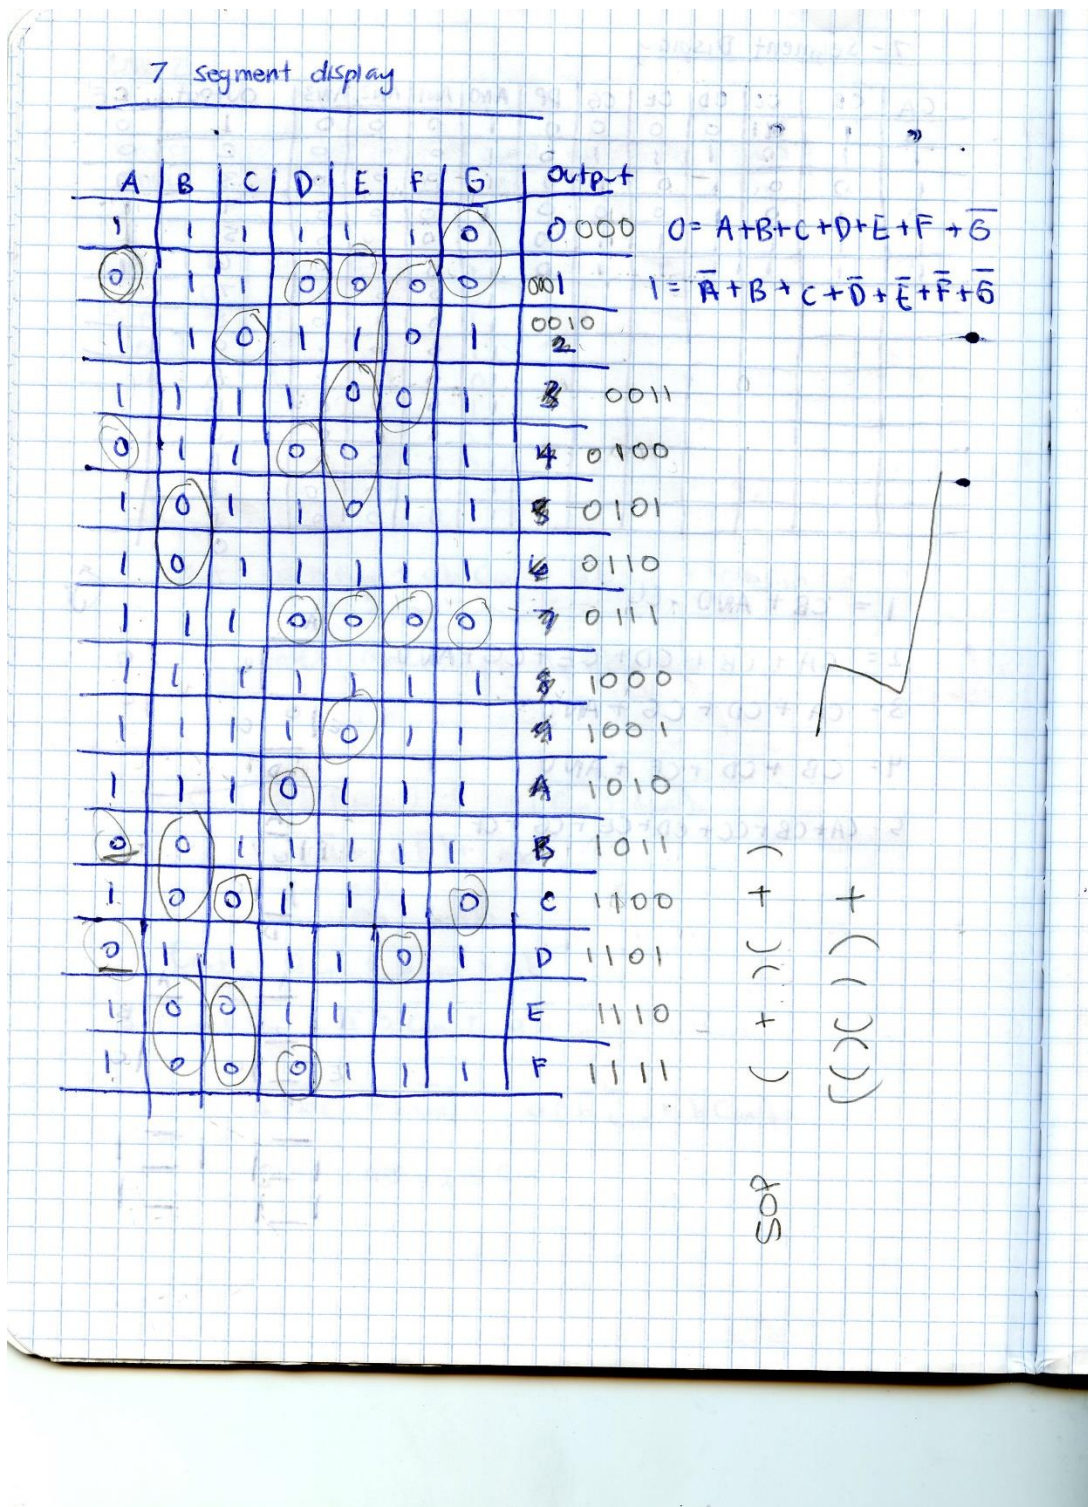 7 segment display
A B C D E F G Output
1 1 1 1 1 1 0 0000 0 = A+B+C+D+E+F+G̅
0 1 1 0 0 0 0 0001 1 = A̅+B+C+D̅+E̅+F̅+G̅
1 1 0 1 1 0 1 0010 2
1 1 1 1 0 0 1 3 0011
0 1 1 0 0 1 1 4 0100
1 0 1 1 0 1 1 5 0101
1 0 1 1 1 1 1 6 0110
1 1 1 0 0 0 0 7 0111
1 1 1 1 1 1 1 8 1000
1 1 1 1 0 1 1 9 1001
1 1 1 0 1 1 1 A 1010
0 0 1 1 1 1 1 B 1011
1 0 0 1 1 1 0 C 1100
0 1 1 1 1 0 1 D 1101
1 0 0 1 1 1 1 E 1110
1 0 0 0 1 1 1 F 1111
SOP ( + )( + )
(()()) +